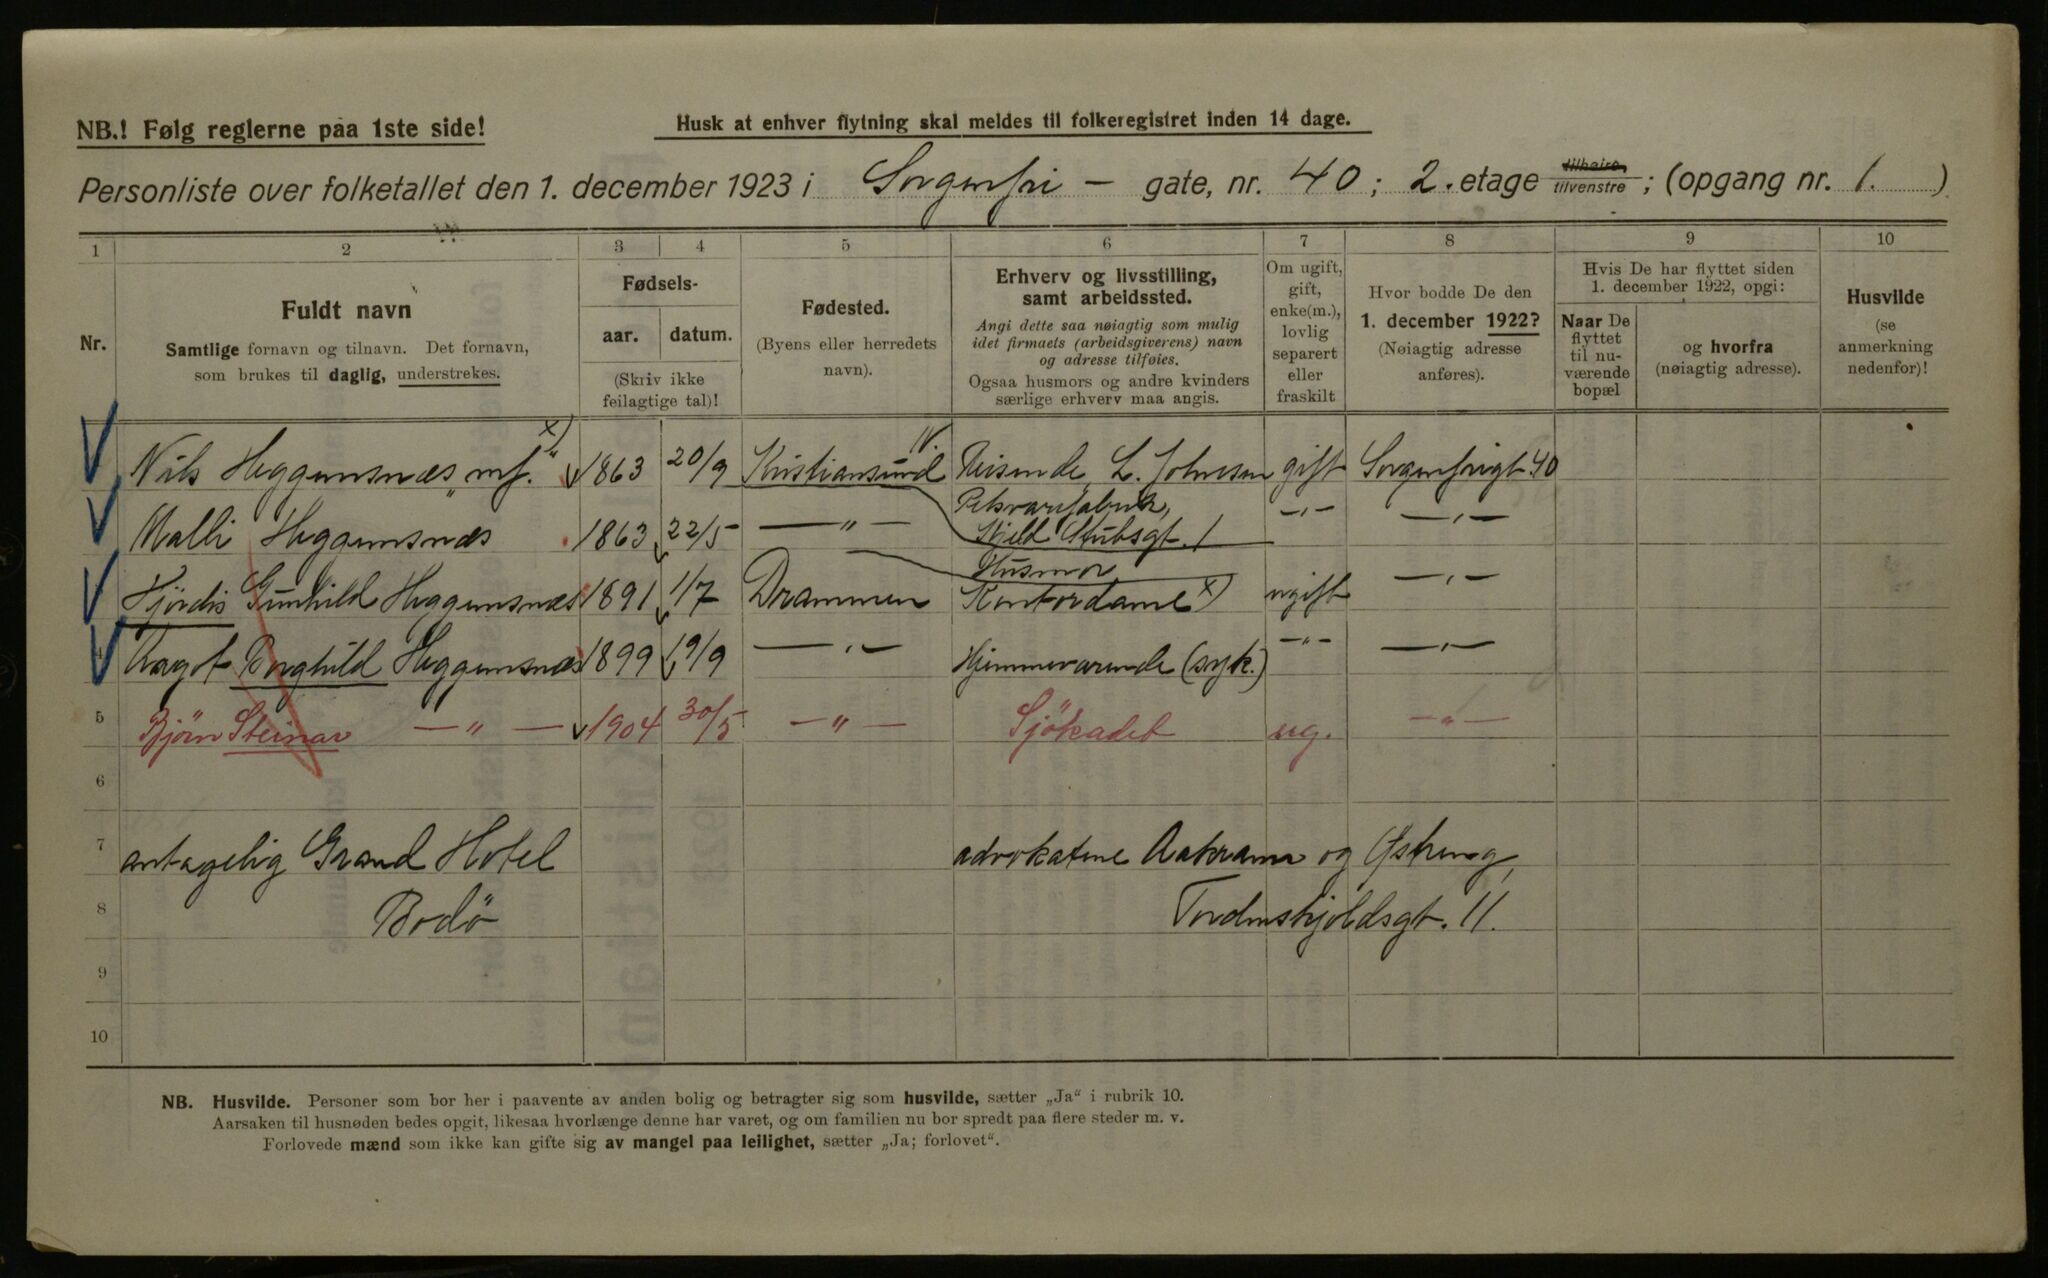 NB.! Følg reglerne paa 1ste side!
Husk at enhver flytning skal meldes til folkeregistret inden 14 dage.
Personliste over folketallet den 1. december 1923 i Sorgenfri - gate, nr. 40; 2. etage tilhøire, tilvenstre; (opgang nr. 1.)
1 2 3 4 5 6 7 8 9 10
Nr.
Fuldt navn
Samtlige fornavn og tilnavn. Det fornavn,
som brukes til daglig, understrekes.
Fødsels-
aar. datum.
(Skriv ikke
feilagtige tal)!
Fødested.
(Byens eller herredets
navn).
Erhverv og livsstilling,
samt arbeidssted.
Angi dette saa nøiagtig som mulig
idet firmaets (arbeidsgiverens) navn
og adresse tilføies.
Ogsaa husmors og andre kvinders
særlige erhverv maa angis.
Om ugift,
gift,
enke(m.),
lovlig
separert
eller
fraskilt
Hvor bodde De den
1. december 1922?
(Nøiagtig adresse
anføres).
Hvis De har flyttet siden
1. december 1922, opgi:
Naar De
flyttet
til nu-
værende
bopæl
og hvorfra
(nøiagtig adresse).
Husvilde
(se
anmerkning
nedenfor)!
Nils Heggemsnæs "mf." x) 1863 20/9 Kristiansund N. Reisende L. Johnsen gift Sorgenfrigt. 40
Pelsvarefabrik,
Malli Heggemsnæs 1863 22/5 — " — Kield Stubsgt. 1 — " — — " —
Husmor
Hjördis Gunhild Heggemsnæs 1891 1/7 Drammen Kontordame x) ugift — " —
4 Aagot Borghild Heggemsnæs 1899 19/9 — " — Hjemmeværende (syk.) — " — — " —
5 Bjørn Steinar — " — 1904 30/5 — " — Sjökadet ug. — " —
6
7 antagelig Grand Hotel advokatene Aakrann og Østreng,
8 Bodö Tordenskjoldsgt. 11.
9
10
NB. Husvilde. Personer som bor her i paavente av anden bolig og betragter sig som husvilde, sætter „Ja“ i rubrik 10.
Aarsaken til husnøden bedes opgit, likesaa hvorlænge denne har varet, og om familien nu bor spredt paa flere steder m. v.
Forlovede mænd som ikke kan gifte sig av mangel paa leilighet, sætter „Ja; forlovet“.